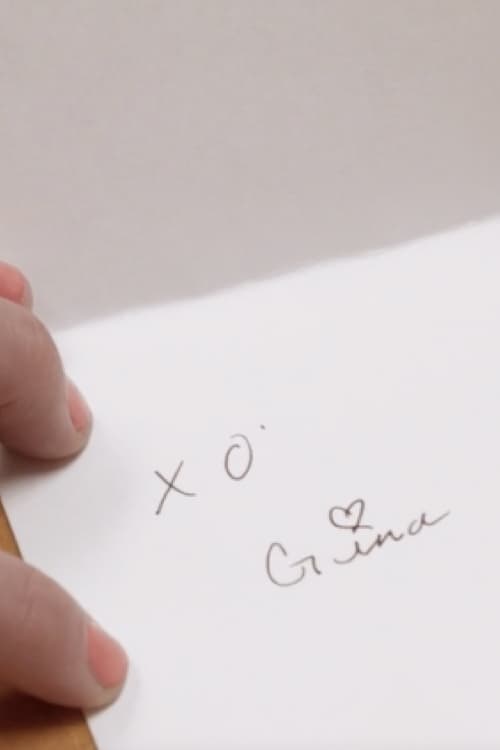 X O
Gina